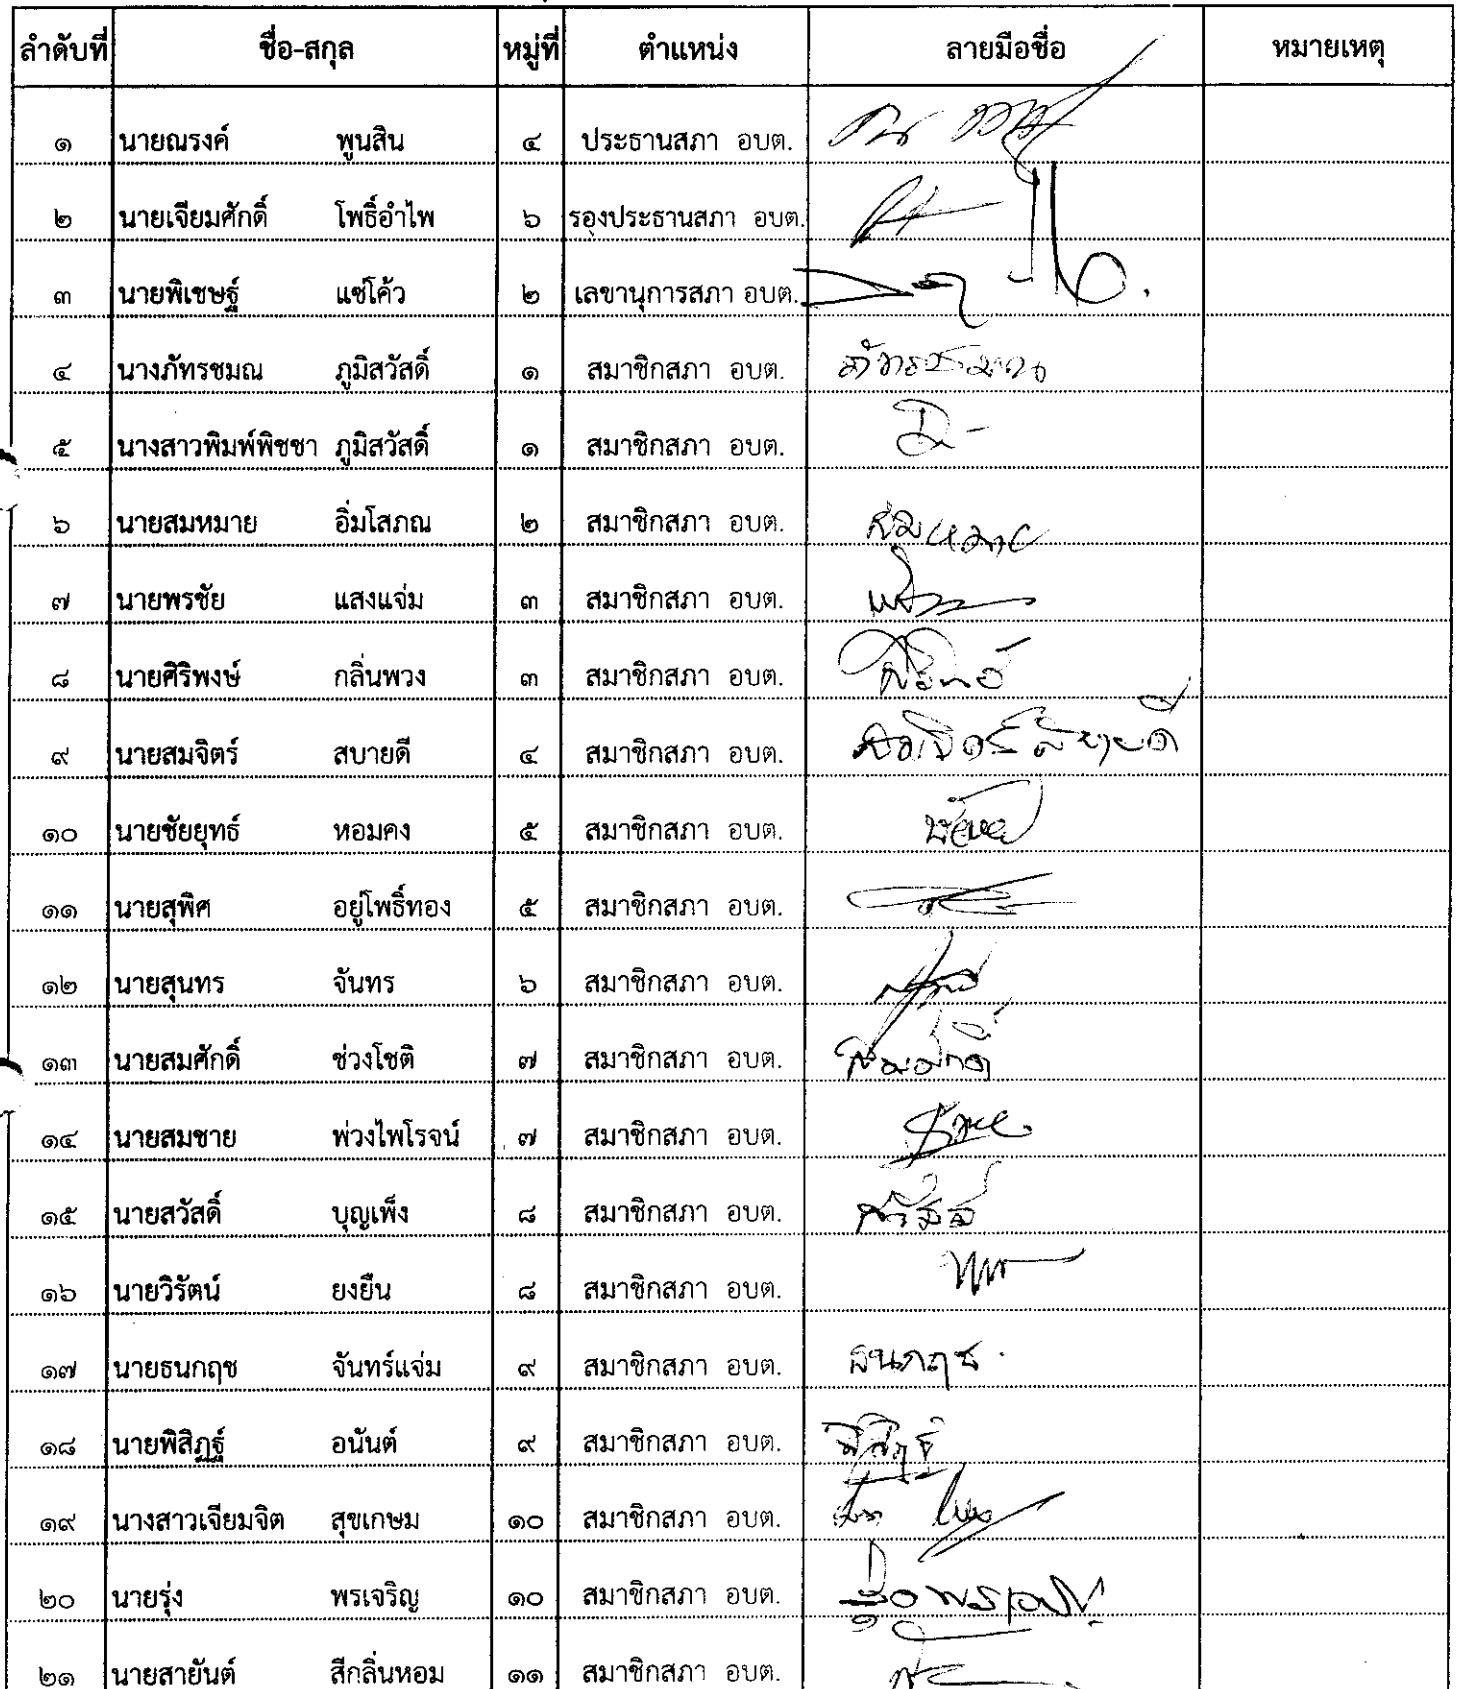 ลำดับที่ ชื่อ-สกุล หมู่ที่ ตำแหน่ง ลายมือชื่อ หมายเหตุ
๑ นายณรงค์ พูนสิน ๔ ประธานสภา อบต.
๒ นายเจียมศักดิ์ โพธิ์อำไพ ๖ รองประธานสภา อบต.
๓ นายพิเชษฐ์ แซ่โค้ว ๒ เลขานุการสภา อบต.
๔ นางภัทรชมณ ภูมิสวัสดิ์ ๑ สมาชิกสภา อบต.
๕ นางสาวพิมพ์พิชชา ภูมิสวัสดิ์ ๑ สมาชิกสภา อบต.
๖ นายสมหมาย อิ่มโสภณ ๒ สมาชิกสภา อบต. สมหมาย
๗ นายพรชัย แสงแจ่ม ๓ สมาชิกสภา อบต.
๘ นายศิริพงษ์ กลิ่นพวง ๓ สมาชิกสภา อบต.
๙ นายสมจิตร์ สบายดี ๔ สมาชิกสภา อบต. สมจิตร์ สบายดี
๑๐ นายชัยยุทธ์ หอมคง ๕ สมาชิกสภา อบต.
๑๑ นายสุพิศ อยู่โพธิ์ทอง ๕ สมาชิกสภา อบต.
๑๒ นายสุนทร จันทร ๖ สมาชิกสภา อบต.
๑๓ นายสมศักดิ์ ช่วงโชติ ๗ สมาชิกสภา อบต. สมศักดิ์
๑๔ นายสมชาย พ่วงไพโรจน์ ๗ สมาชิกสภา อบต.
๑๕ นายสวัสดิ์ บุญเพ็ง ๘ สมาชิกสภา อบต. สวัสดิ์
๑๖ นายวิรัตน์ ยงยืน ๘ สมาชิกสภา อบต.
๑๗ นายธนกฤช จันทร์แจ่ม ๙ สมาชิกสภา อบต. ธนกฤช
๑๘ นายพิสิฏฐ์ อนันต์ ๙ สมาชิกสภา อบต. พิสิฏฐ์
๑๙ นางสาวเจียมจิต สุขเกษม ๑๐ สมาชิกสภา อบต.
๒๐ นายรุ่ง พรเจริญ ๑๐ สมาชิกสภา อบต.
๒๑ นายสายันต์ สีกลิ่นหอม ๑๑ สมาชิกสภา อบต.